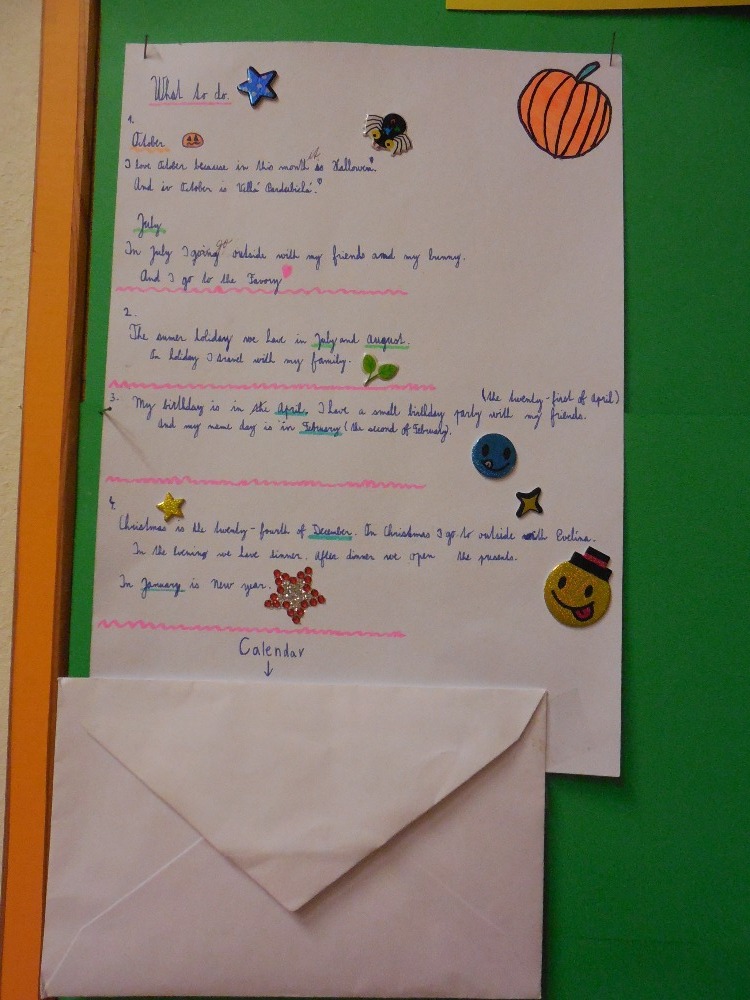 What to do.
1.
October
I love October because in this month it is Hallowen.
And in October is Velká Pardubická.
July
In July I going go outside with my friends and my bunny.
And I go to the Favory
2.
The sumer holiday we have in July and August.
In holiday I travel with my family.
(the twenty-first of april)
3. My birthday is in the April. I have a small birthday party with my friends.
And my name day is in February (the second of February).
4.
Christmas is the twenty-fourth of December. On Christmas I go to outside with Evelina.
In the evening we have dinner. After dinner we open the presents.
In January is New year.
Calendar